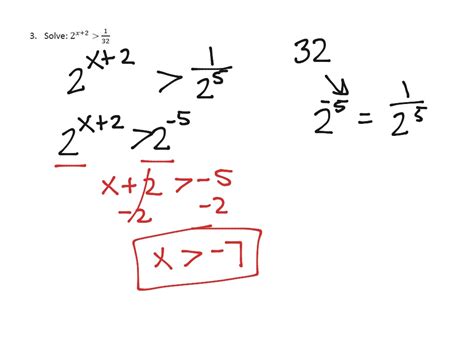 3. Solve: 2^{x+2} > \frac{1}{32}
2^{x+2} > \frac{1}{2^5}
2^{x+2} > 2^{-5}
x+2 > -5
-2 -2
x > -7
32
2^{-5} = \frac{1}{2^5}